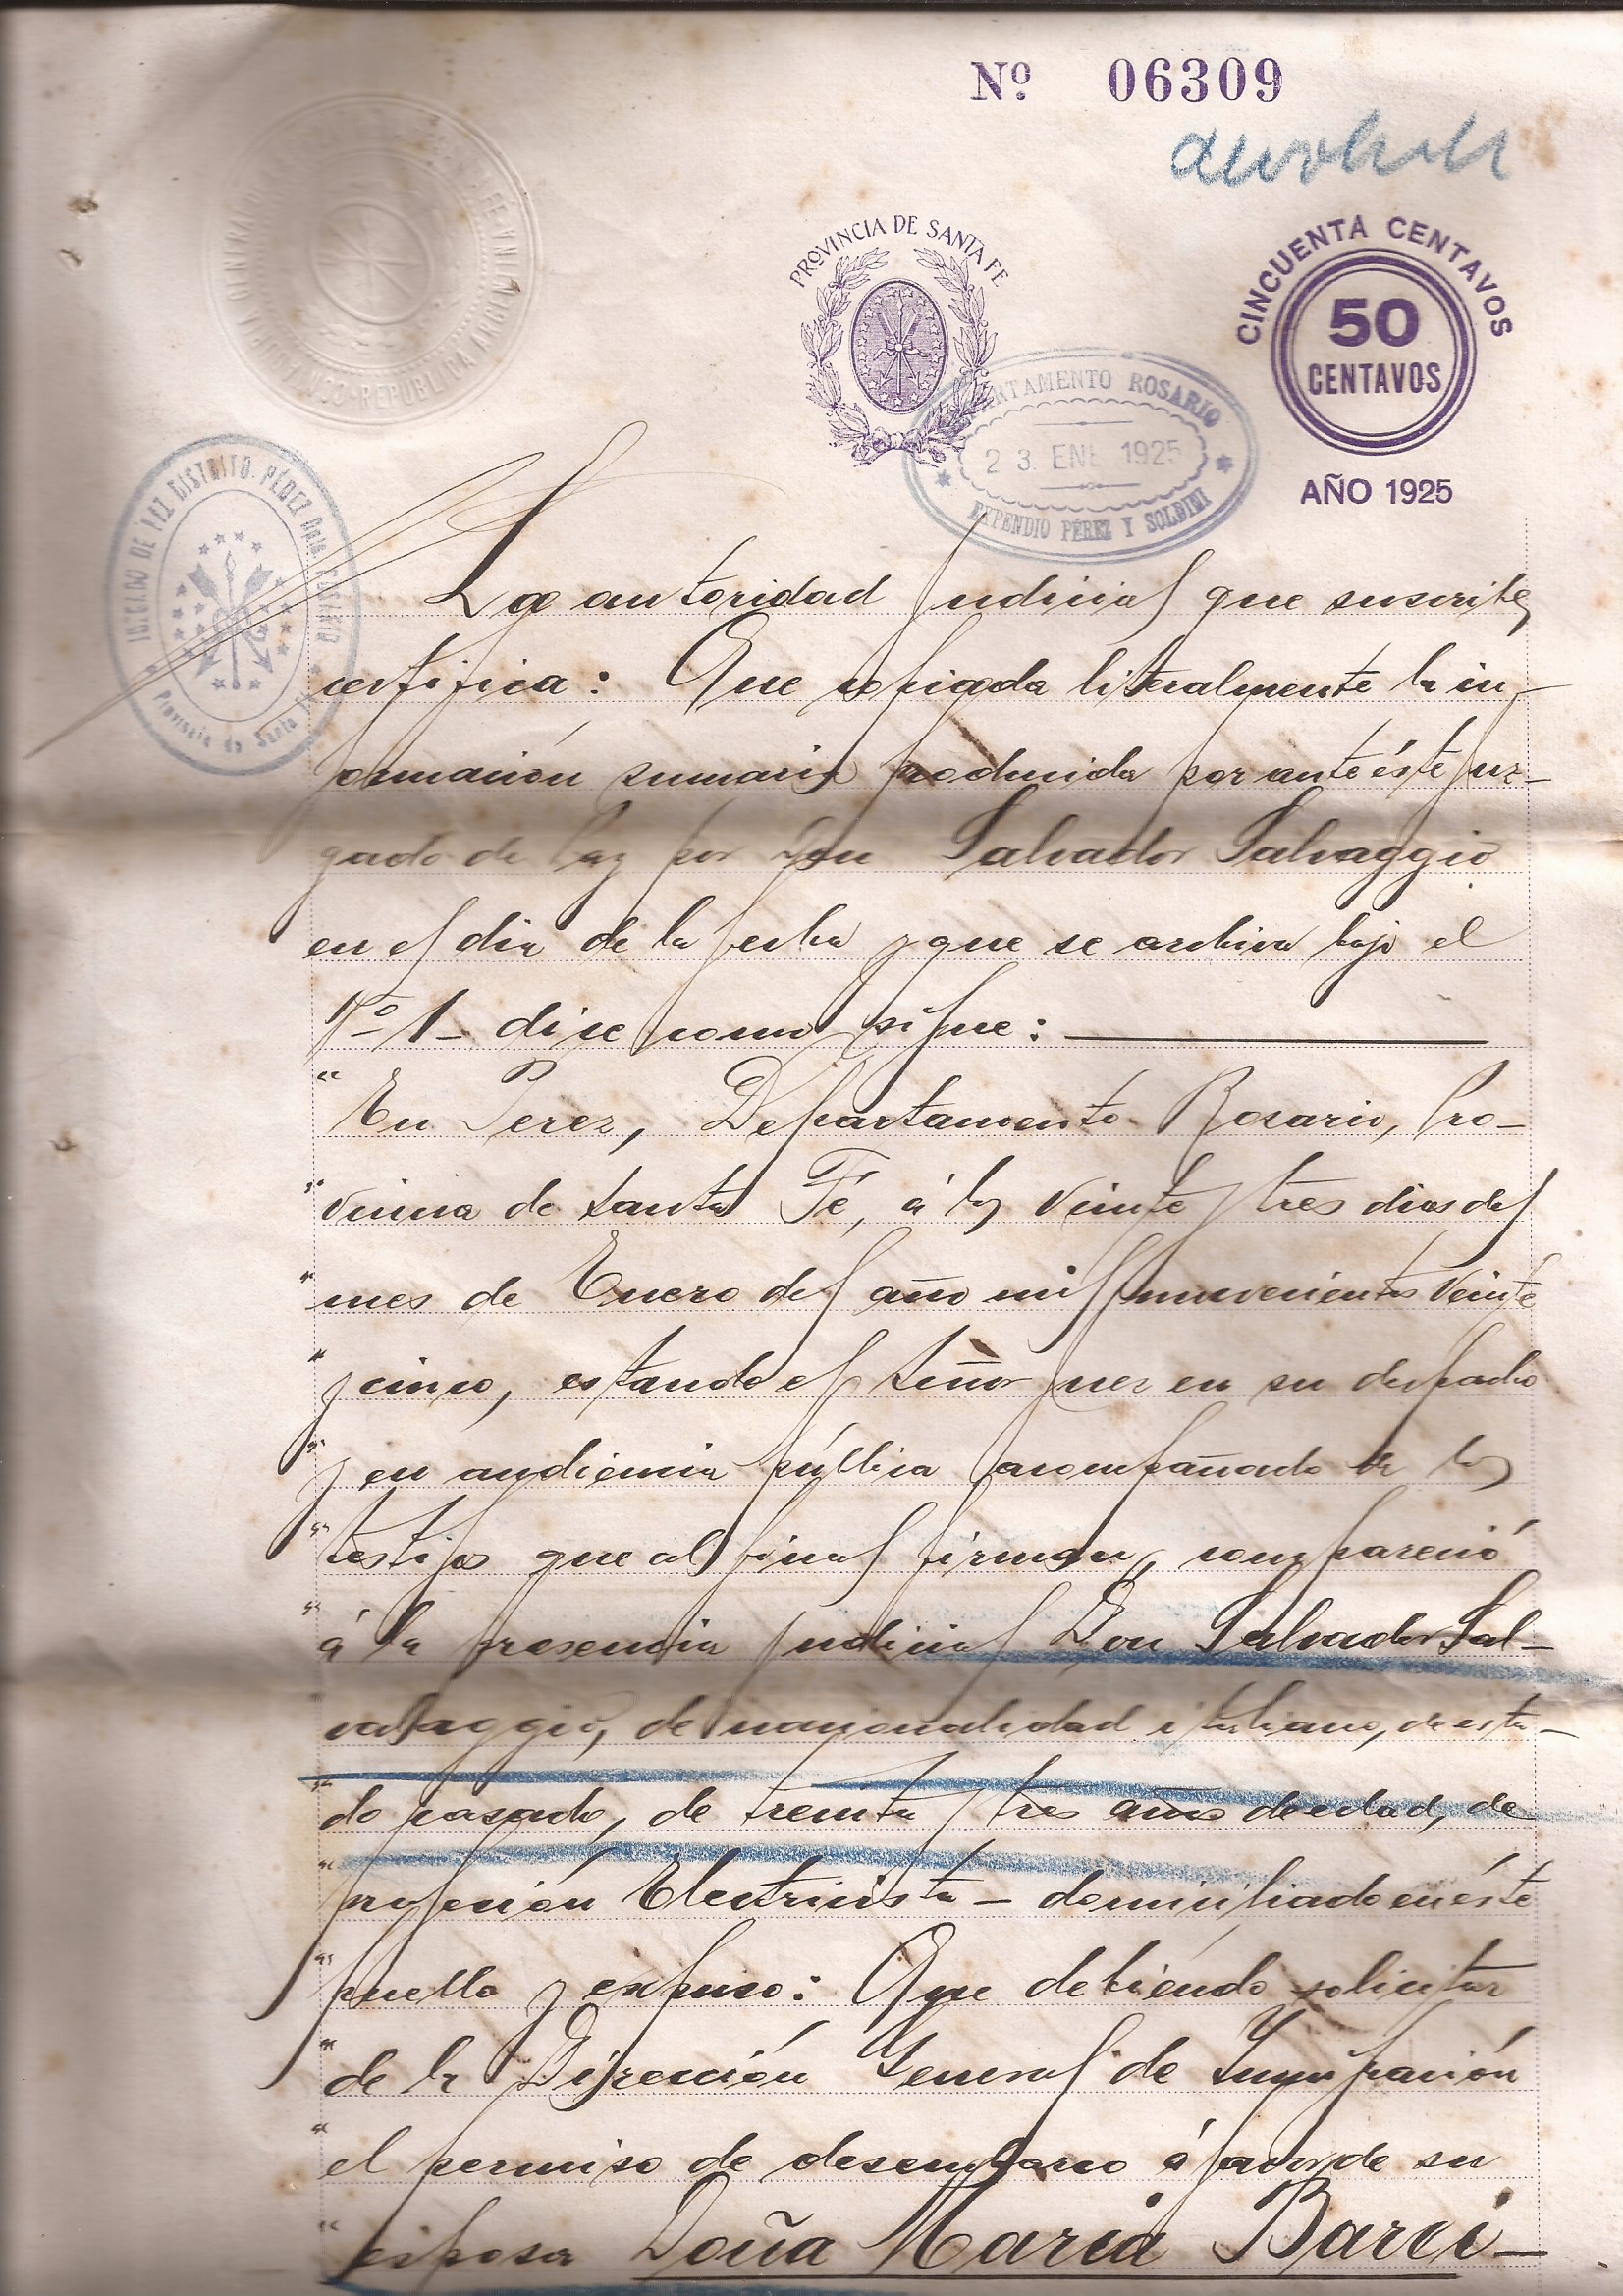 Nº 06309
PROVINCIA DE SANTA FE
CINCUENTA CENTAVOS
50
CENTAVOS
AÑO 1925
DEPARTAMENTO ROSARIO
23 ENE 1925
EXPENDIO PÉREZ Y SOLDINI
JUZGADO DE PAZ DISTRITO PÉREZ Dpto. ROSARIO
Provincia de Santa Fe
REPUBLICA ARGENTINA
La autoridad judicial que suscribe
certifica: Que copiada literalmente la in-
formación sumaria producida por ante éste juz-
gado de Paz por Don Salvador Salvaggio
en el dia de la fecha y que se archiva bajo el
Nº 1- dice como sigue:
"En Perez, Departamento Rosario, Pro-
"vincia de Santa Fé, á los veinte y tres dias del
"mes de Enero del año mil novecientos veinte
"y cinco, estando el Señor Juez en su despacho
"y en audiencia pública acompañado de los
"testigos que al final firman, compareció
"á la presencia judicial Don Salvador Sal-
"vaggio, de nacionalidad italiano, de esta-
"do casado, de treinta y tres años de edad, de
"profesión Electricista - domiciliado en éste
"pueblo y expuso: Que debiéndo solicitar
"de la Dirección General de Inmigración
"el permiso de desembarco á favor de su
"esposa Doña Maria Barci-